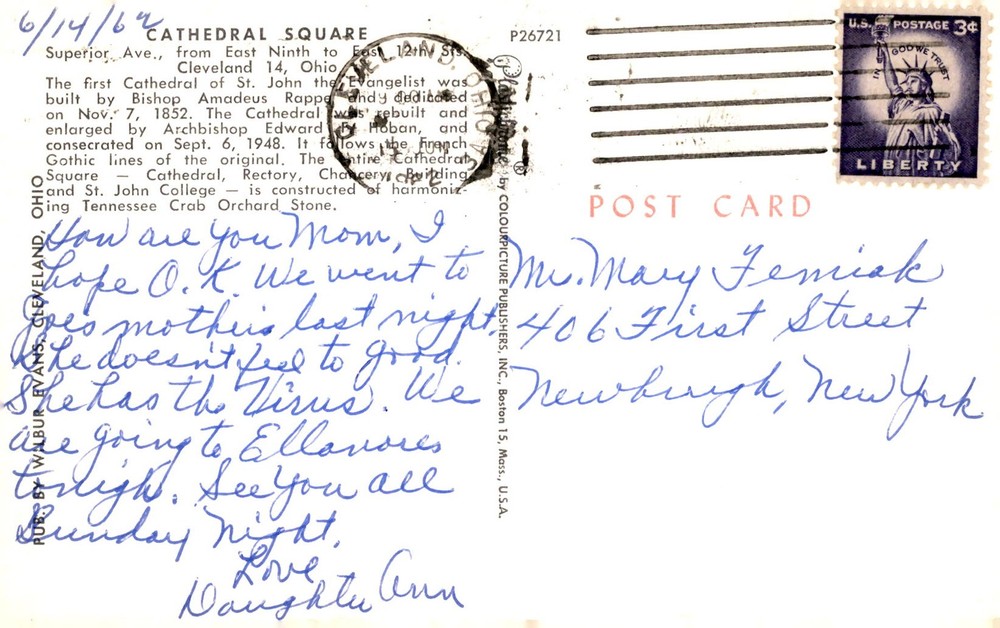 6/14/62
CATHEDRAL SQUARE
Superior Ave., from East Ninth to East 12th Sts.
Cleveland 14, Ohio
The first Cathedral of St. John the Evangelist was
built by Bishop Amadeus Rappe and dedicated
on Nov. 7, 1852. The Cathedral was rebuilt and
enlarged by Archbishop Edward F. Hoban, and
consecrated on Sept. 6, 1948. It follows the French
Gothic lines of the original. The entire Cathedral
Square — Cathedral, Rectory, Chancery Building
and St. John College — is constructed of harmoniz-
ing Tennessee Crab Orchard Stone.
How are you Mom, I
hope O.K. We went to
Joe's mothers last night,
she doesn't feel to good.
She has the Virus. We
are going to Ellanores
tonigh. See You all
Sunday Night,
Love
Daughter Ann
PUB. BY WILBUR EVANS, CLEVELAND, OHIO
P26721
CLEVELAND, OHIO
Plastichrome ® by COLOURPICTURE PUBLISHERS, INC., Boston 15, Mass., U.S.A.
U.S. POSTAGE 3¢
IN GOD WE TRUST
LIBERTY
POST CARD
Mr. Mary Femiak
406 First Street
Newburgh, New York